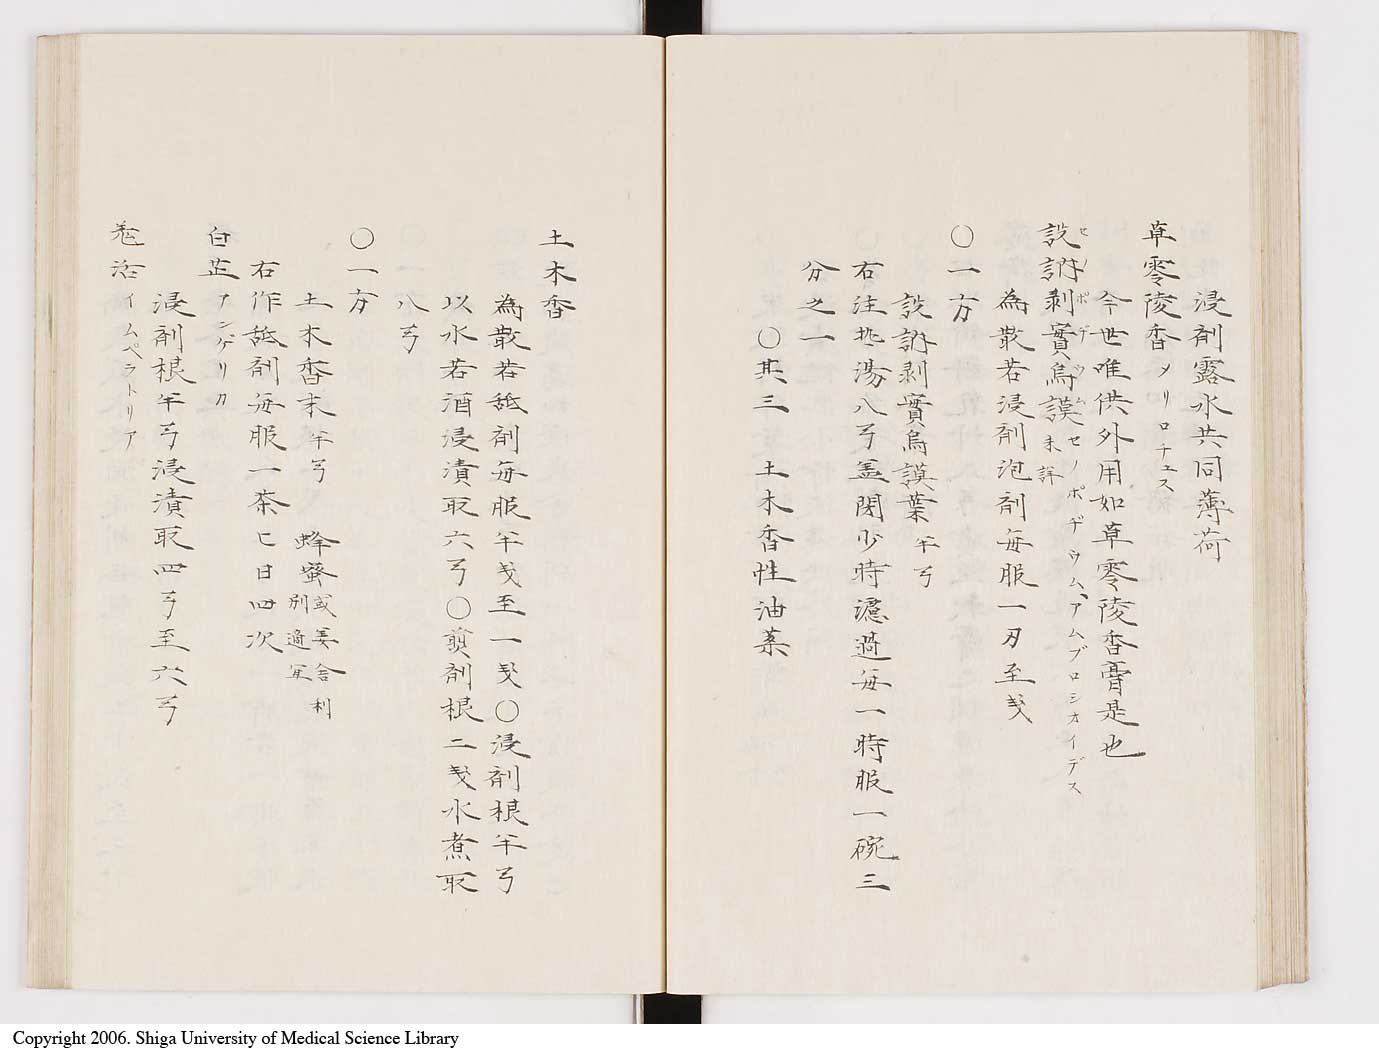 浸剤露水共同薄荷
草零陵香メリロチュス
今世唯供外用如草零陵香膏是也
設訥剥實烏謨未詳セノポヂウム、アムブロシオイデス
セノポデウム
為散若浸剤泡剤毎服一刃至戔
〇一方
設訥剥實烏謨葉半弓
右注熱湯八弓盖閉少時濾過毎一時服一碗三
分之一
〇其三 土木香性油薬
土木香
為散若舐剤毎服半戔至一戔〇浸剤根半弓
以水若酒浸漬取六弓〇煎剤根二戔水煮取
八弓
〇一方
土木香末半弓 蜂蜜或姜舎利別適宜
右作舐剤毎服一茶匕日四次
白芷アンゲリカ
浸剤根半弓浸漬取四弓至六弓
羌活イムペラトリア
Copyright 2006. Shiga University of Medical Science Library